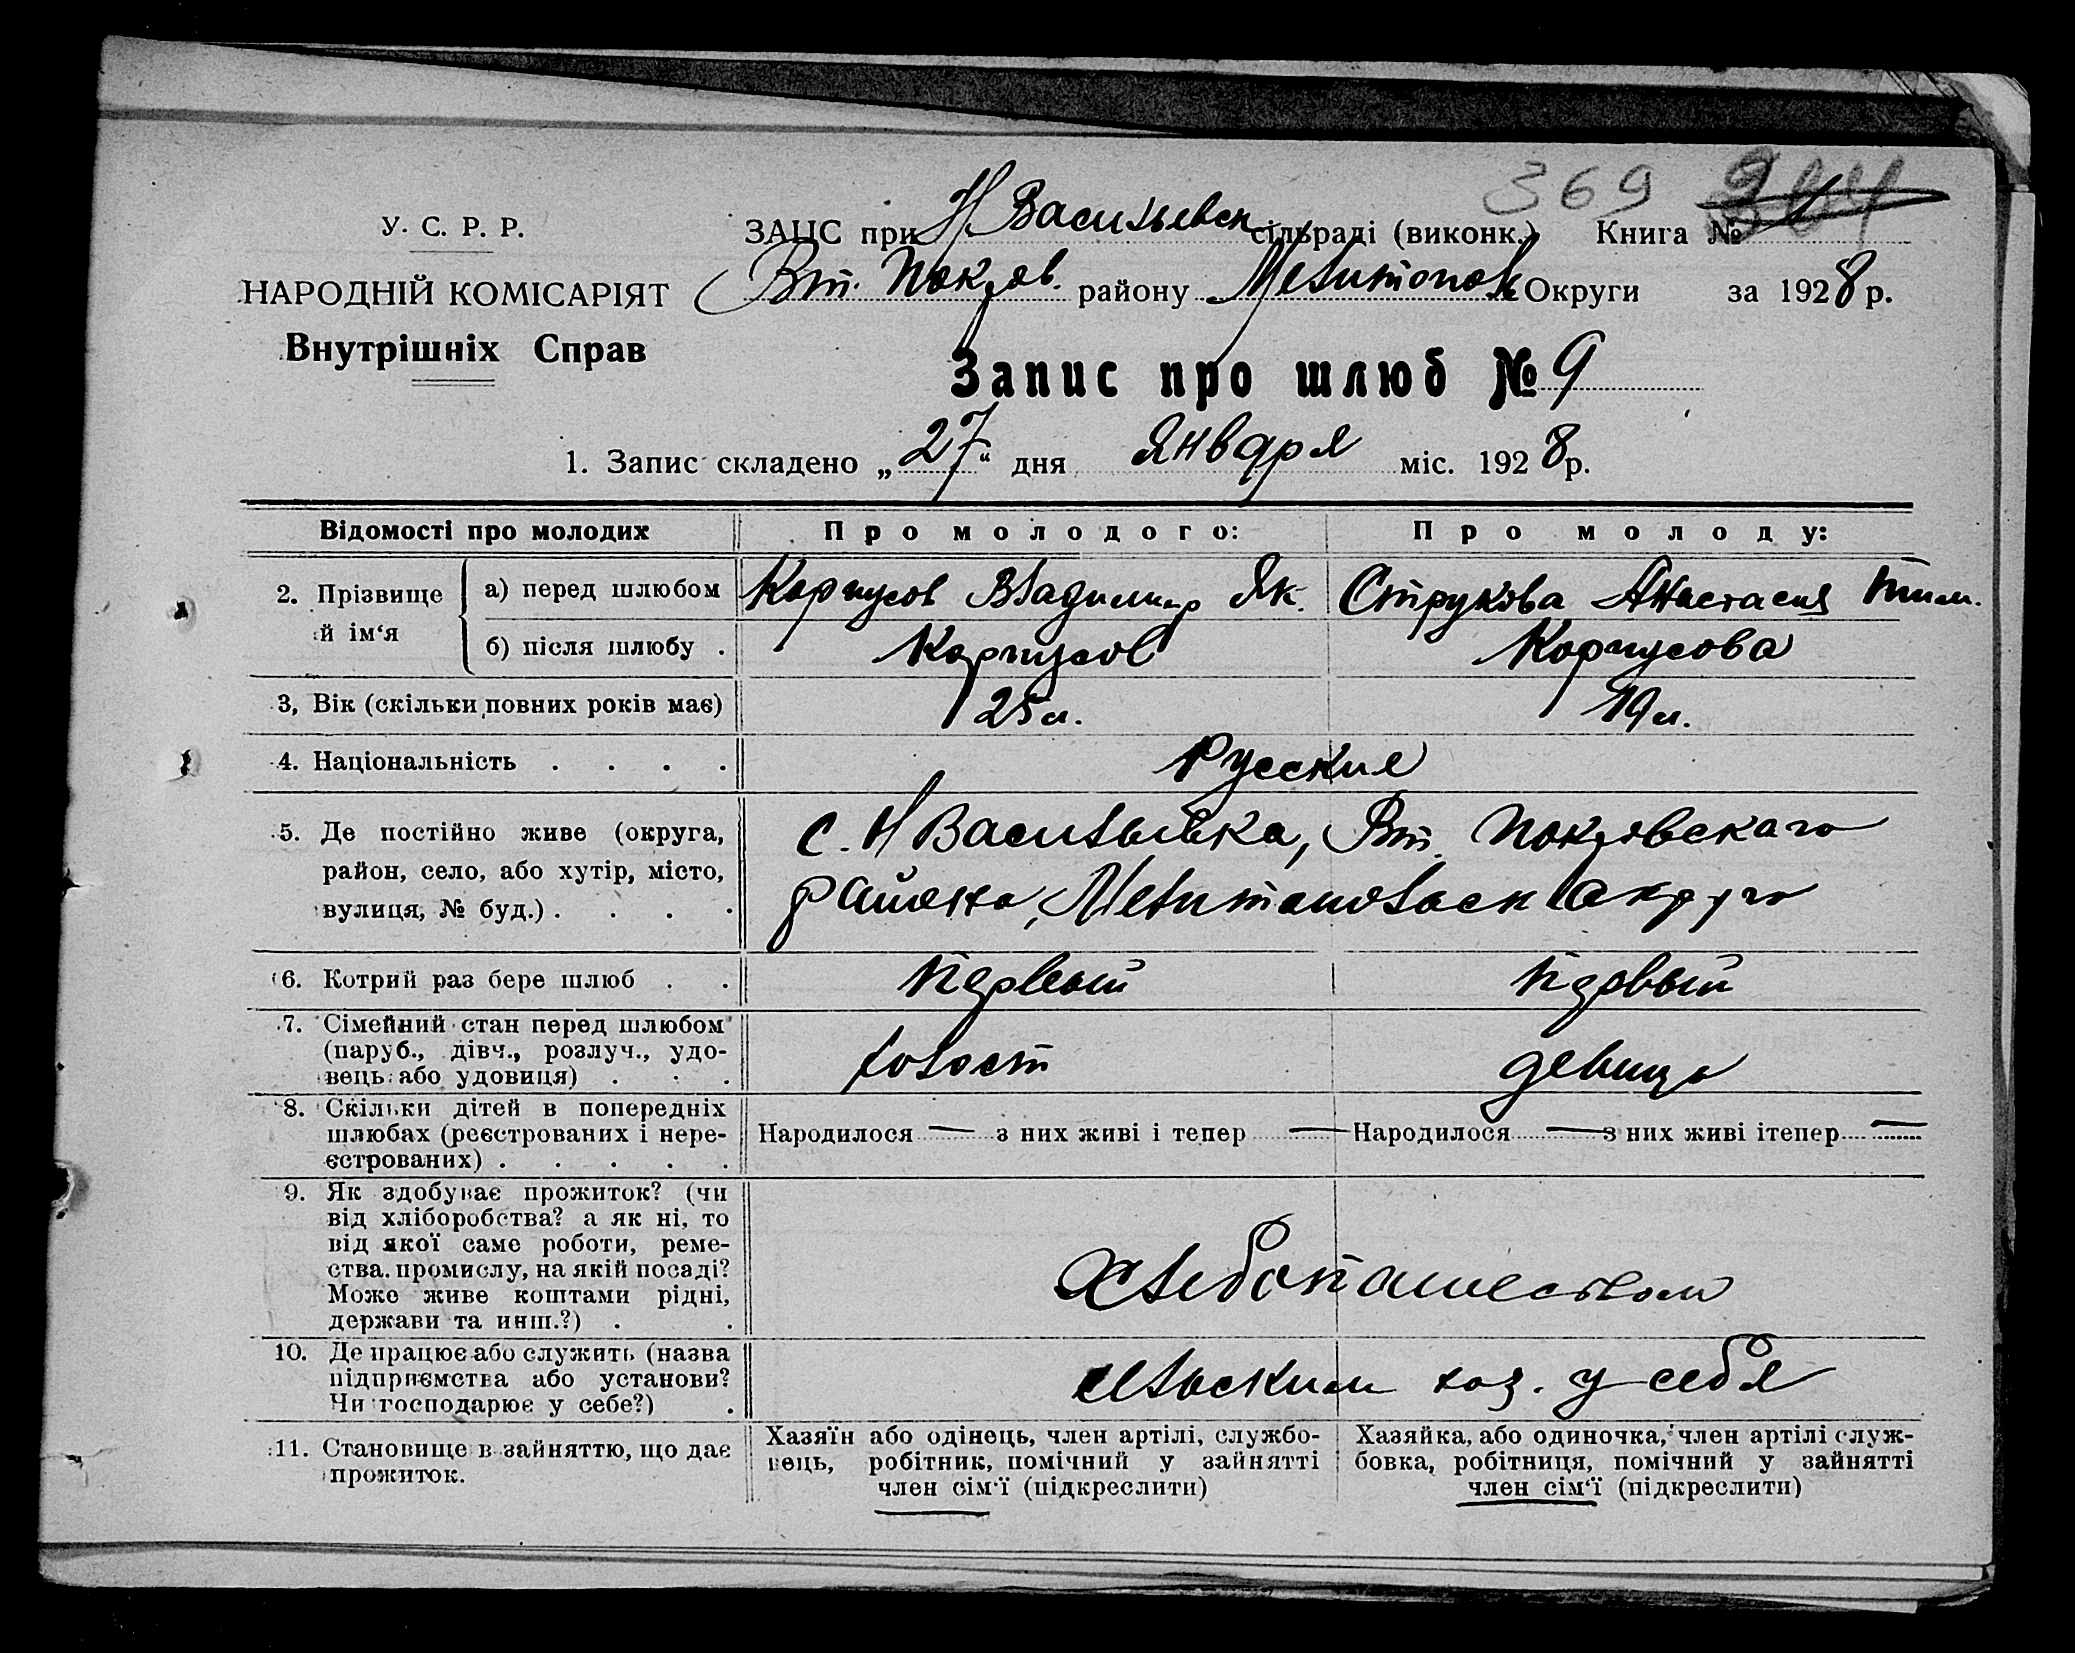 369
У. С. Р. Р.
НАРОДНІЙ КОМІСАРІЯТ
Внутрішніх Справ
ЗАЦС при Н Васильевск сільраді (виконк.) Книга №
Вт. Покров. району Мелитопол Округи за 1928 р.
Запис про шлюб № 9
1. Запис складено „27“ дня Января міс. 1928 р.
Відомості про молодих
Про молодого:
Про молоду:
2. Прізвище й ім‘я
а) перед шлюбом
Корпусов Владимир Як.
Струкова Анастасия Тим.
б) після шлюбу .
Корпусов
Корпусова
3, Вік (скільки повних років має)
25 л.
19 л.
4. Національність . . . .
Русския
5. Де постійно живе (округа,
район, село, або хутір, місто,
вулиця, № буд.) . . . .
с. Н Васильевка, Вт. Покровскаго
района, Округа
6. Котрий раз бере шлюб . .
Первый
Первый
7. Сімейний стан перед шлюбом
(паруб., дівч., розлуч., удо-
вець або удовиця) . . .
холост
девица
8. Скільки дітей в попередніх
шлюбах (реєстрованих і нере-
єстрованих) . . . . .
Народилося — з них живі і тепер —
Народилося — з них живі ітепер —
9. Як здобуває прожиток? (чи
від хліборобства? а як ні, то
від якої саме роботи, реме-
ства. промислу, на якій посаді?
Може живе коштами рідні,
держави та инш.?) . .
Хлебопашеством
10. Де працює або служить (назва
підприємства або установи?
Чи господарює у себе?) .
сельским хоз. у себя
11. Становище в зайняттю, що дає
прожиток.
Хазяїн або одінець, член артілі, службо-
вець, робітник, помічний у зайнятті
член сім‘ї (підкреслити)
Хазяйка, або одиночка, член артілі служ-
бовка, робітниця, помічний у зайнятті
член сім‘ї (підкреслити)